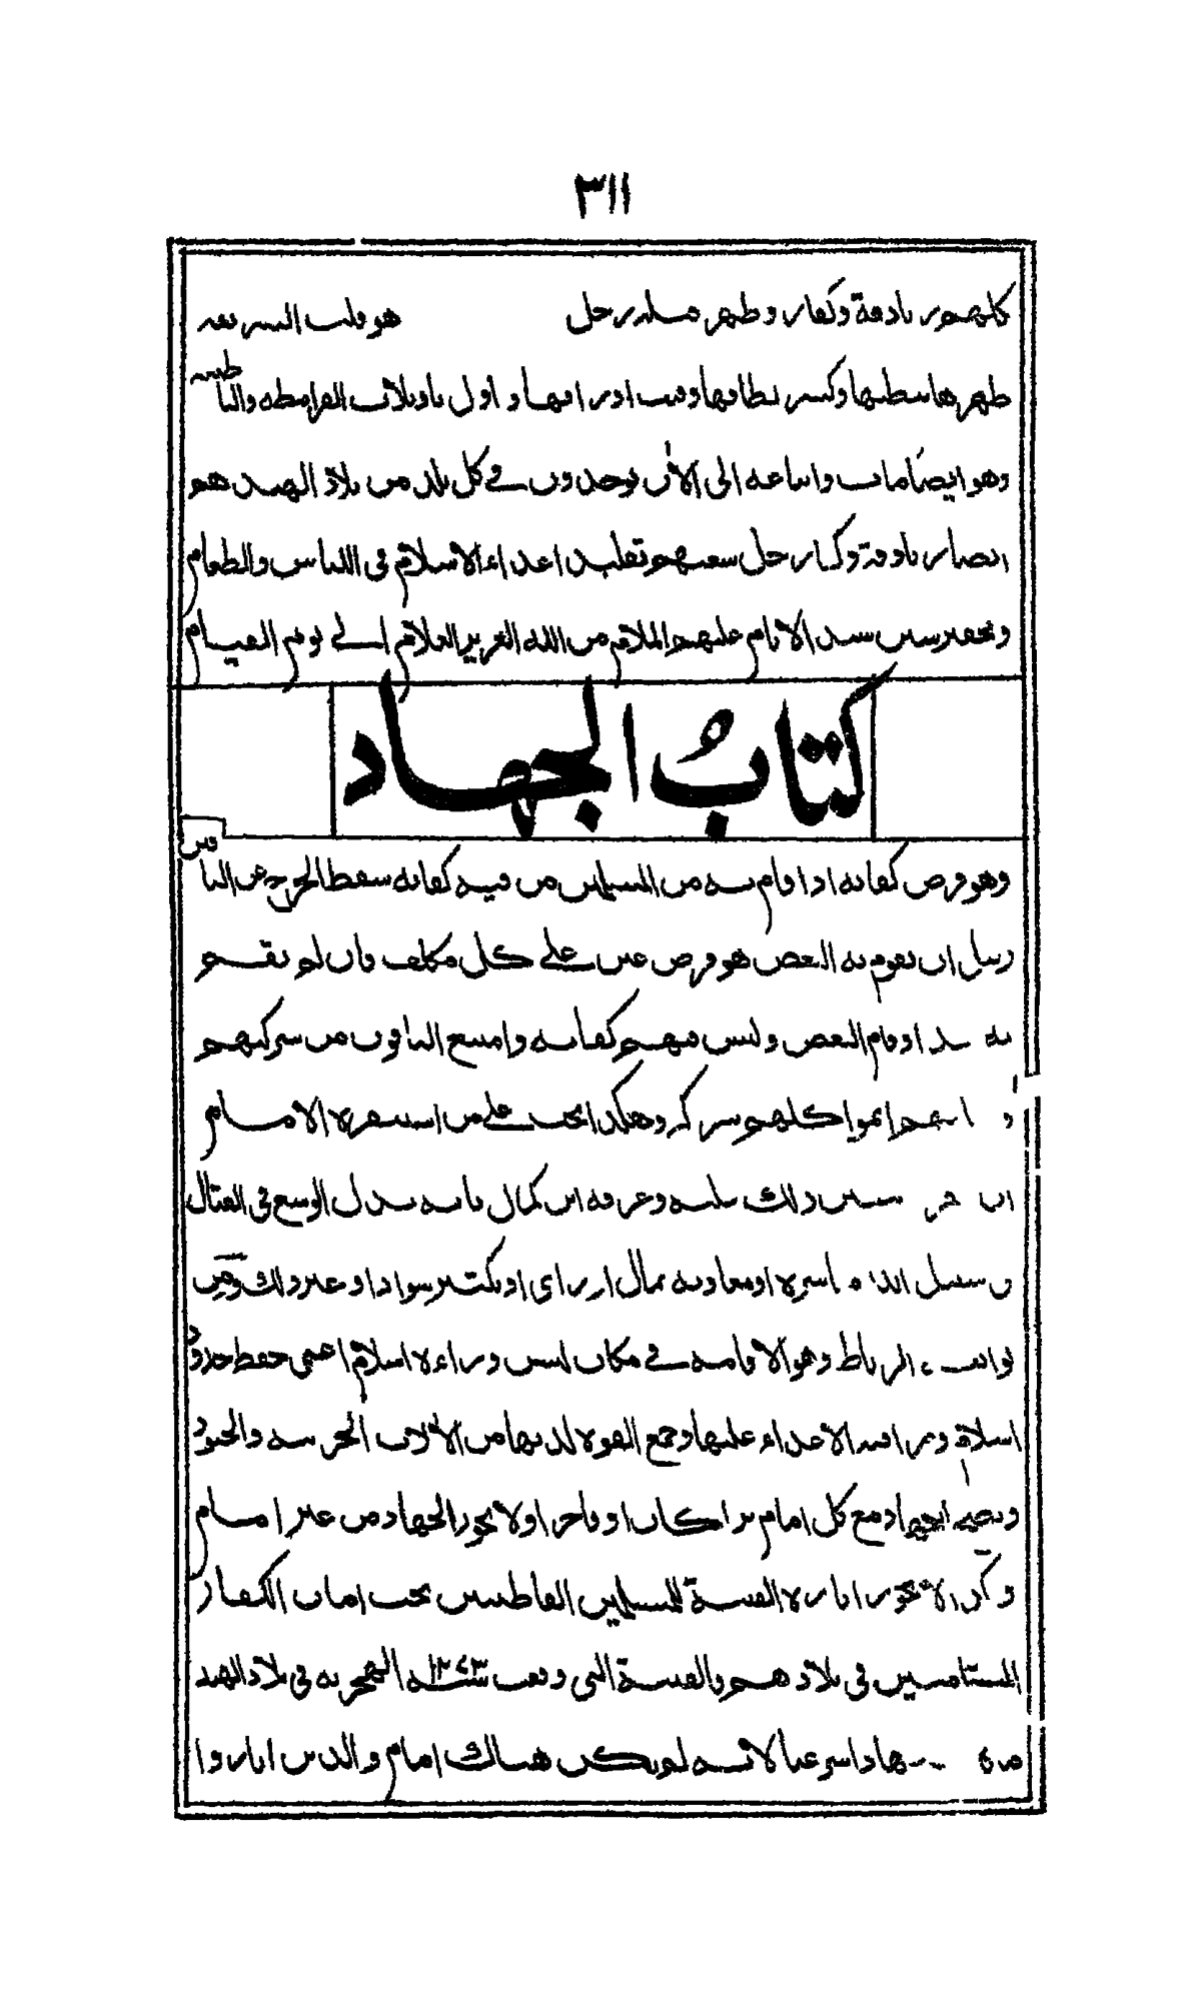 ٣١١
كلهم زنادقة وكفار وظهر رجل هو قلب الشريعة
ظهرها بطنها وكسر اول تاويلات القرامطة والباطنية
وهو ايضا مات واتباعه الى الآن يوجدون في كل بلد من بلاد الهند هم
ايضا زنادقة وكفار جل سعيهم تقليد اعداء الاسلام في اللباس والطعام
وتحقير سنن سيد الانام عليهم الملام من الله العزيز العلام الى يوم القيام
كتابُ الجهاد
وهو فرض كفاية اذا قام به من المسلمين من فيه كفاية سقط الحرج عن الباقين
قبل ان يقوم به البعض هو فرض عين على كل مكلف فان لم يقم
به احد او قام البعض وليس فيهم كفاية وامتنع الباقون من شركتهم
اثموا كلهم وهكذا يجب على من استنفره الامام
ذلك بانه بذل الوسع في القتال
في سبيل الله مباشرة او معاونة بمال او راى او بتكثير سواد او غير ذلك ومن
توابعه الرباط وهو الاقامة في مكان ليس وراءه اسلام اعنى حفظ حدود
اسلام ومراقبة الاعداء عليها وجمع القوة لديها من الآلات الحربية والجنود
ويصح الجهاد مع كل امام برا كان او فاجرا ولا يجوز الجهاد من غير امام
وكذا لا يجوز اثارة الفتنة للمسلمين القاطنين تحت امان الكفار
المستامنين في بلادهم فالفتنة التى وقعت سنة ١٢٧٣ الهجرية في بلاد الهند
جهادا شرعيا لانه لم يكن هناك امام والذين اثاروا